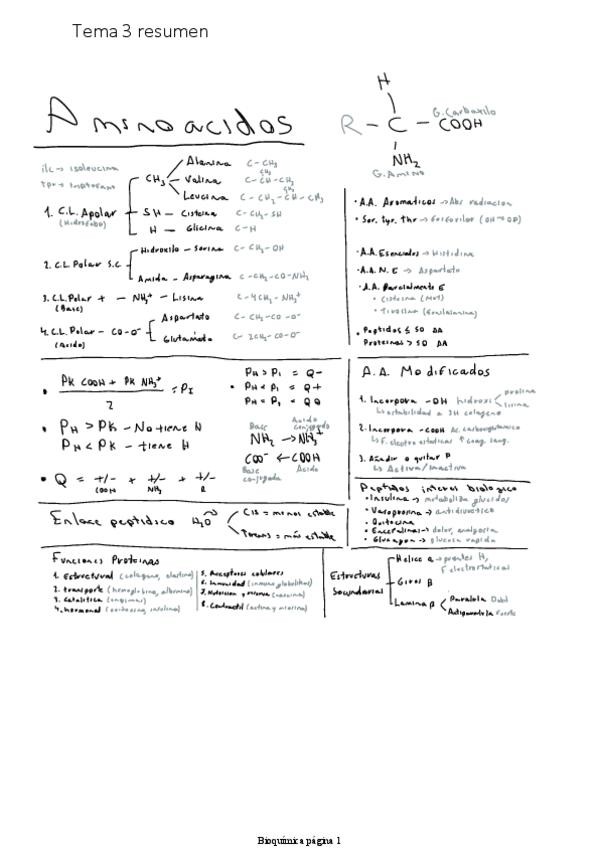 Tema 3 resumen
Aminoacidos
H
R - C - COOH
G. Carboxilo
NH2
G. Amino
ilc → isoleucina
tpr → triptofano
1. C.L. Apolar
(Hidrofobo)
CH3
Alanina C - CH3
Valina C - CH - CH3
CH3
Leucina C - CH2 - CH - CH3
CH3
SH - Cisteina C - CH2 - SH
H - Glicina C - H
2. C.L. Polar S.C
Hidroxilo - Serina C - CH2 - OH
Amida - Asparagina C - CH2 - CO - NH2
3. C.L. Polar + - NH3+ - Lisina C - 4CH2 - NH3+
(Base)
4. C.L. Polar - CO-O-
(Acido)
Aspartato C - CH2 - CO - O-
Glutamato C - 2CH2 - CO - O-
• A.A. Aromaticos → Abs radiacion
• Ser, tyr, thr → fosforilar (OH → OP)
• A.A. Esenciales → Histidina
• A.A. N.E → Aspartato
• A.A. Parcialmente E
• Cisteina (Met)
• Tirosina (Fenilalanina)
• Peptidos ≤ 50 AA
Proteinas > 50 AA
• PK COOH + PK NH3+ = PI
2
• PH > PI = Q-
PH < PI = Q+
PH = PI = Q0
• PH > PK - No tiene H
PH < PK - tiene H
Base
Acido conjugado
NH2 → NH3+
COO- ← COOH
Base conjugada
Acido
• Q = +/- + +/- + +/-
COOH NH2 R
A.A. Modificados
1. Incorpora -OH hidroxi
prolina
lisina
↳ estabilidad a 3H colageno
2. Incorpora -COOH Ac. carboxiglutamico
↳ F. electrostaticas ↑ coag. sang.
3. Añadir o quitar P
↳ Activa/Inactiva
Enlace peptidico H2O
Cis = menos estable
Trans = más estable
Peptidos interes biologico
• Insulina → metaboliza glucidos
• Vasopresina → antidiuretico
• Oxitocina
• Encefalinas → dolor, analgesia
• Glucagon → glucosa rapida
Funciones Proteinas
1. Estructural (colageno, elastina)
2. transporte (hemoglobina, albumina)
3. Catalitica (enzimas)
4. hormonal (oxitocina, insulina)
5. Receptores celulares
6. Inmunidad (inmunoglobulinas)
7. Nutricion y reserva (caseina)
8. Contractil (actina y miosina)
Estructuras Secundarias
Helice α → puentes H,
F electrostaticas
Giros β
Lamina β
Paralela Debil
Antiparalela Fuerte
Bioquímica página 1